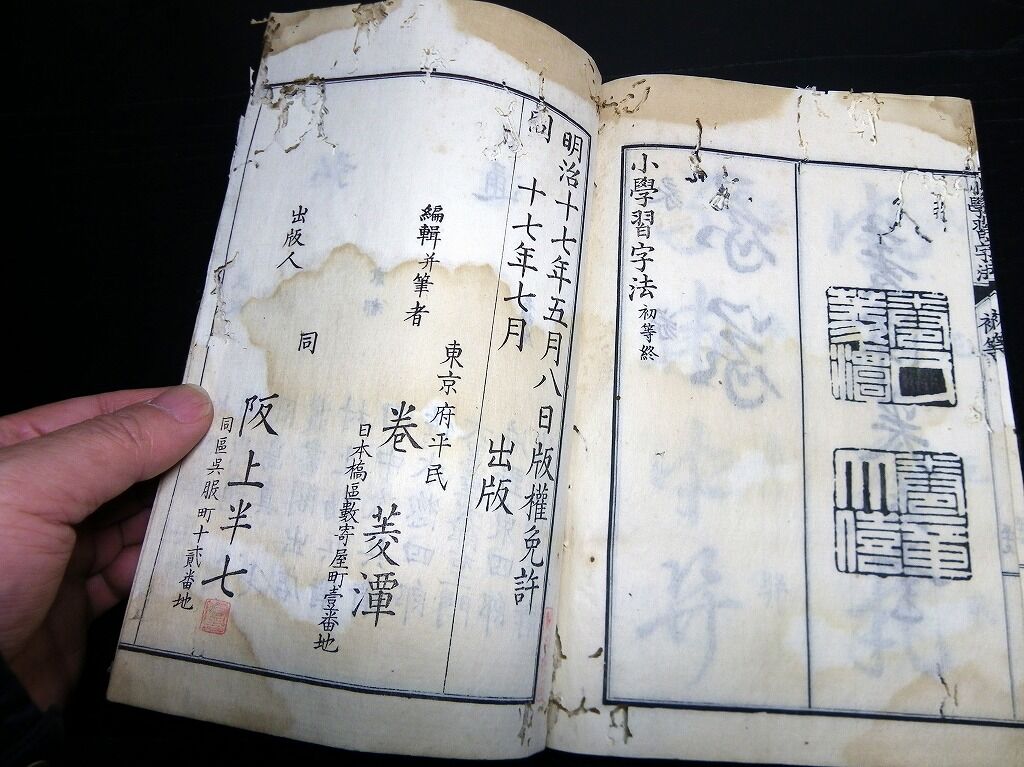 小學習字法 初等終
小學習字法 初等
明治十七年五月八日版權免許
同 十七年七月 出版
東京府平民
編輯并筆者 卷 菱潭
日本橋區數寄屋町壹番地
出版人 同 阪上半七
同區呉服町十貳番地